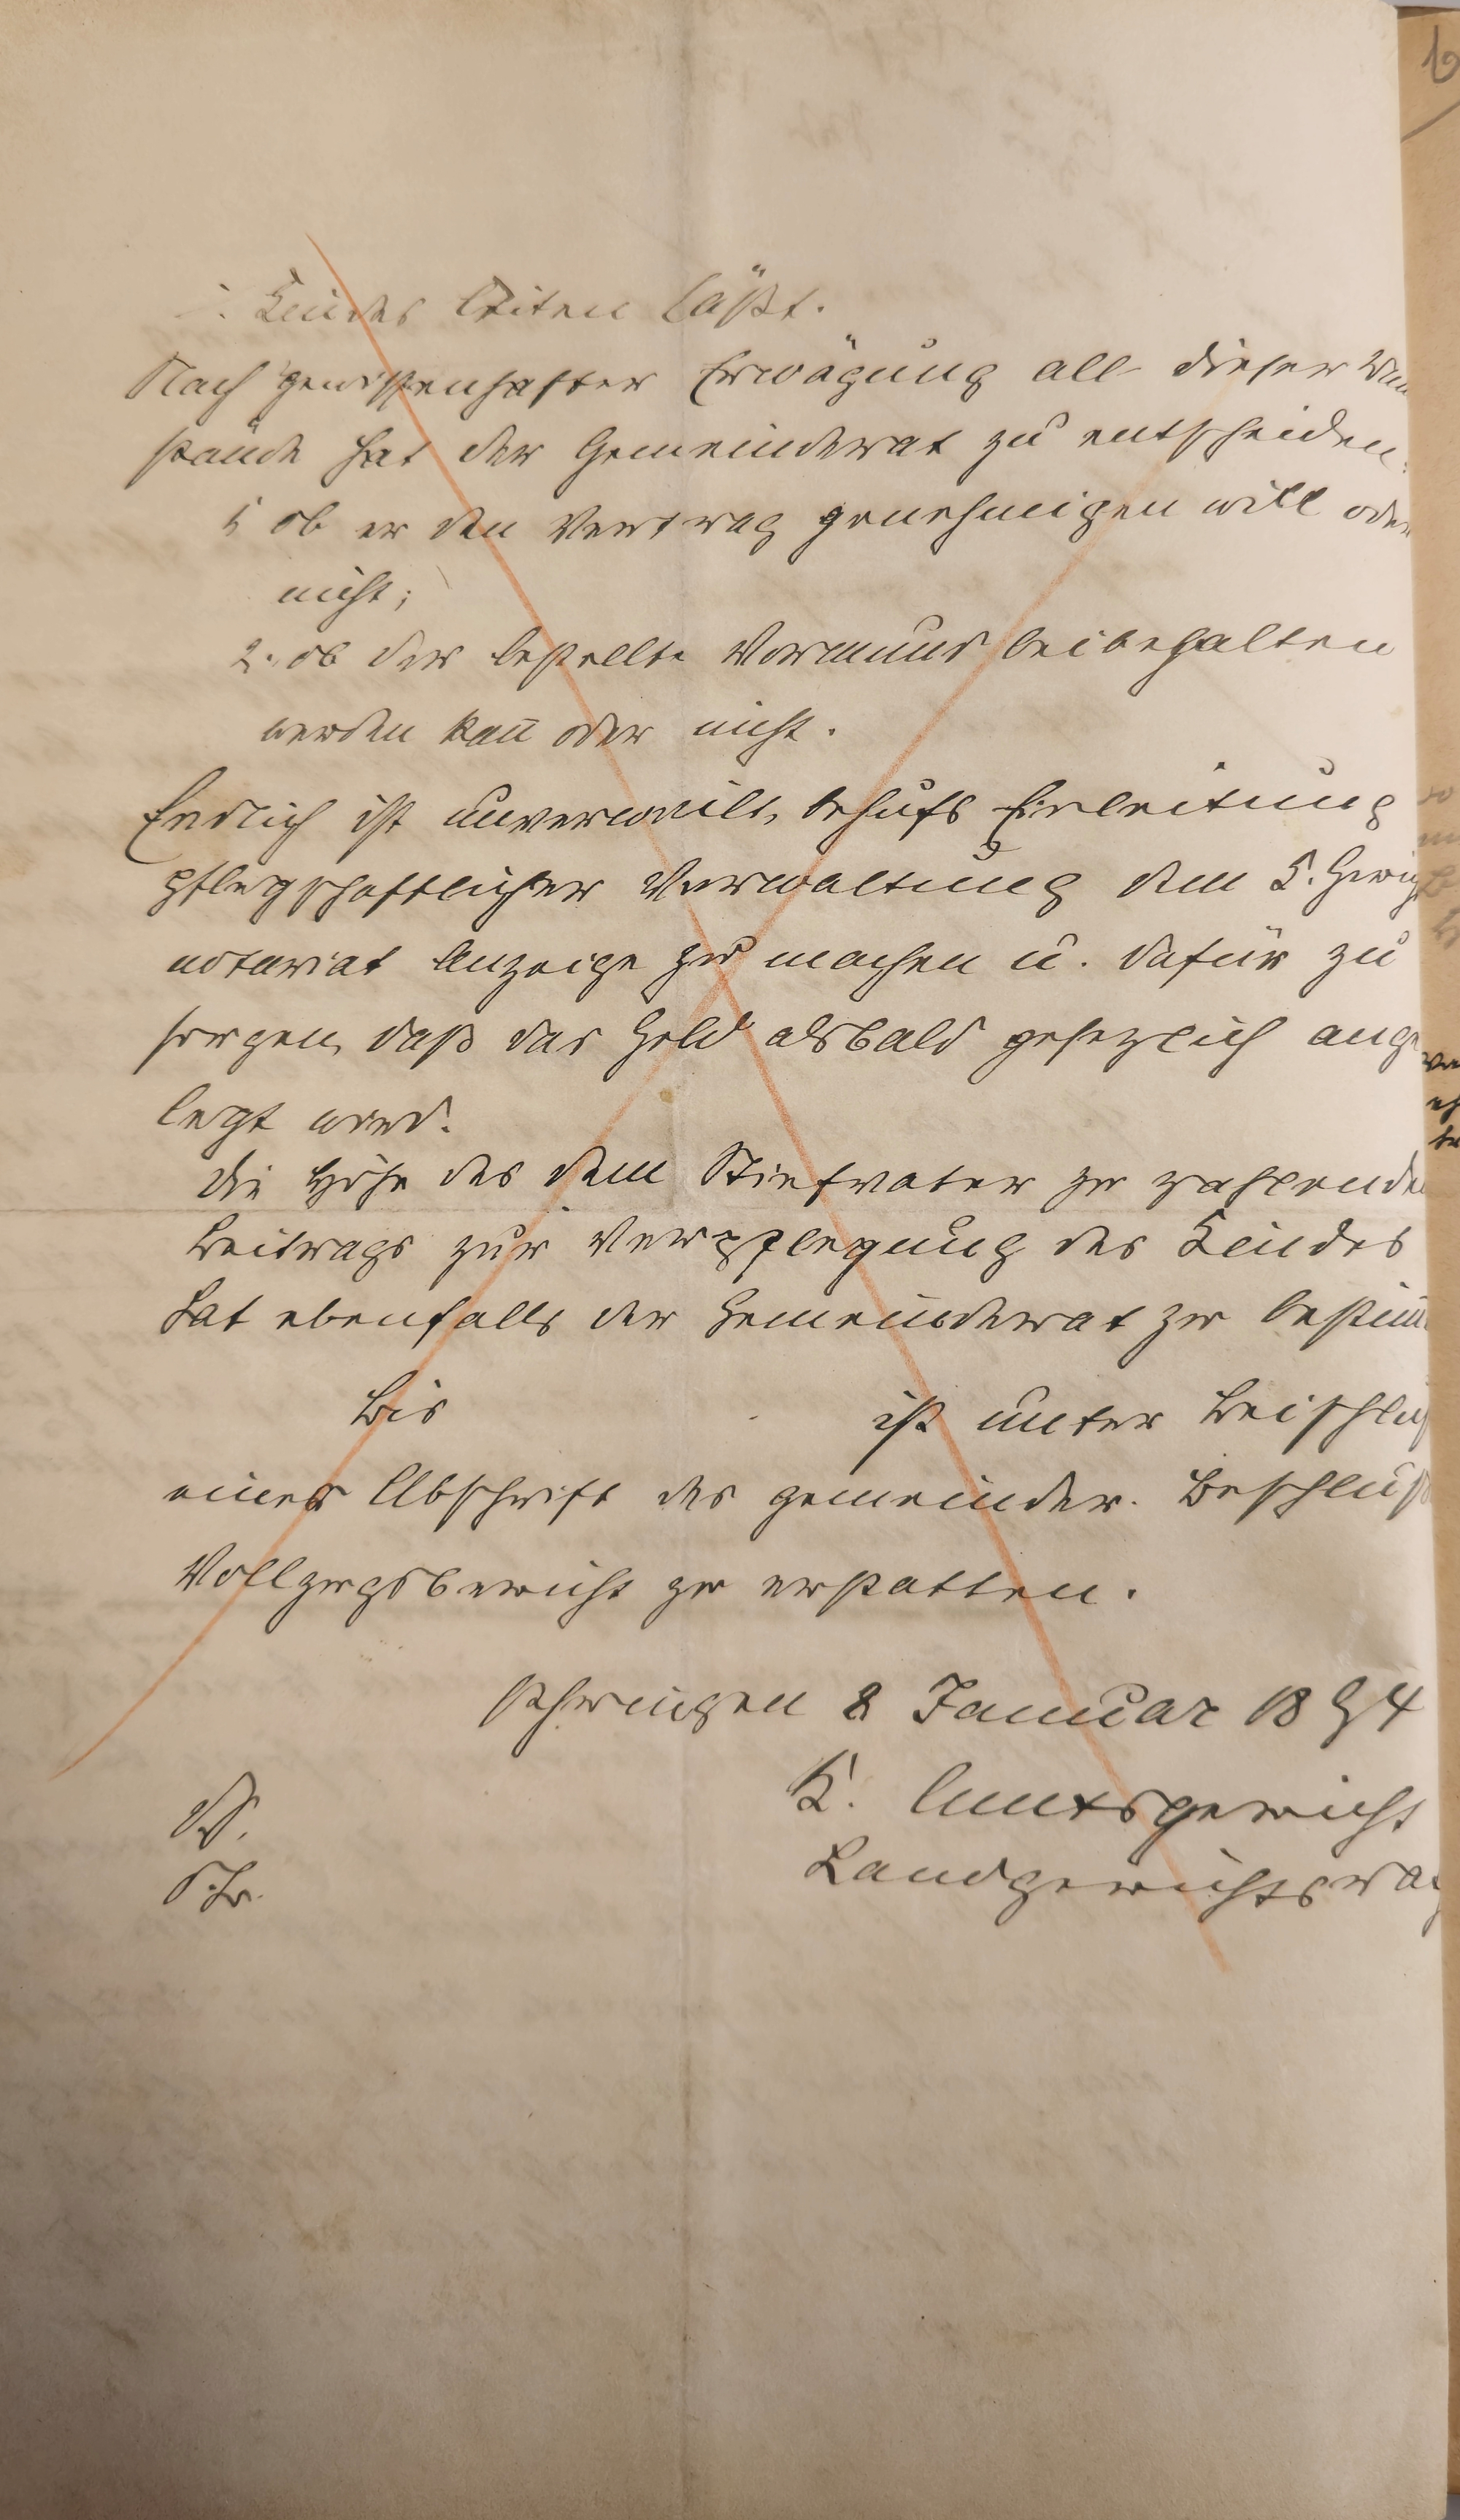 Kindes leiten läßt.
Nach gewissenhafter Erwägung all dieser Um
stände hat der Gemeinderat zu entscheiden:
1. ob er den Vertrag genehmigen will oder
nicht;
2. ob der bestellte Vormund beibehalten
werden kañ oder nicht.
Endlich ist unverweilt, behufs Einleitung
pflegschaftlicher Verwaltung dem K. Gerichts
notariat Anzeige zu machen u. dafür zu
sorgen, daß das Geld alsbald gesezlich ange
legt wird.
Die Höhe des dem Stiefvater zu zahlenden
Beitrags zur Verpflegung des Kindes
hat ebenfalls der Gemeinderat zu
Bis ist unter Beischluß
einer Abschrift des gemeinder. Beschlußes
Vollzugsbericht zu erstatten.
8 Januar 1894
K. Amtsgericht
Landgerichtsrat